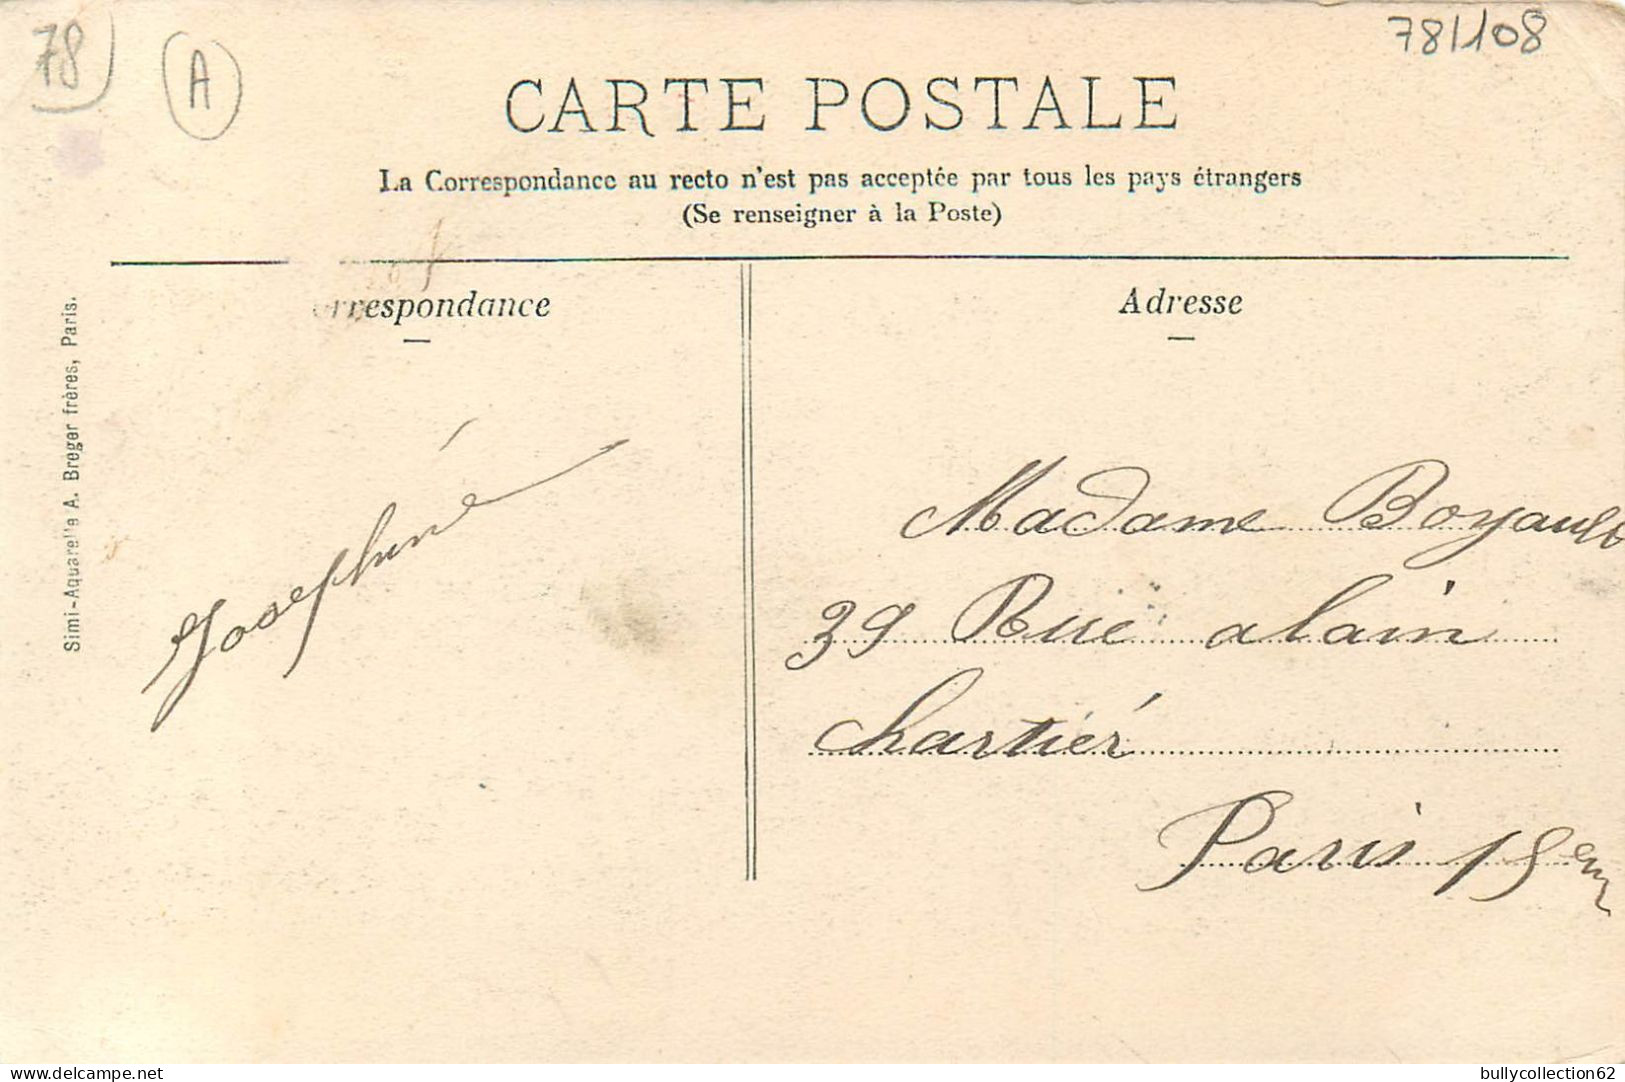 78
A
781108
CARTE POSTALE
La Correspondance au recto n'est pas acceptée par tous les pays étrangers
(Se renseigner à la Poste)
rrespondance
Adresse
Simi-Aquarelle A. Breger frères, Paris.
Josephiné
Madame Boyault
39 Rue alain
Chartiér
Paris 15em
delcampe.net
bullycollection62